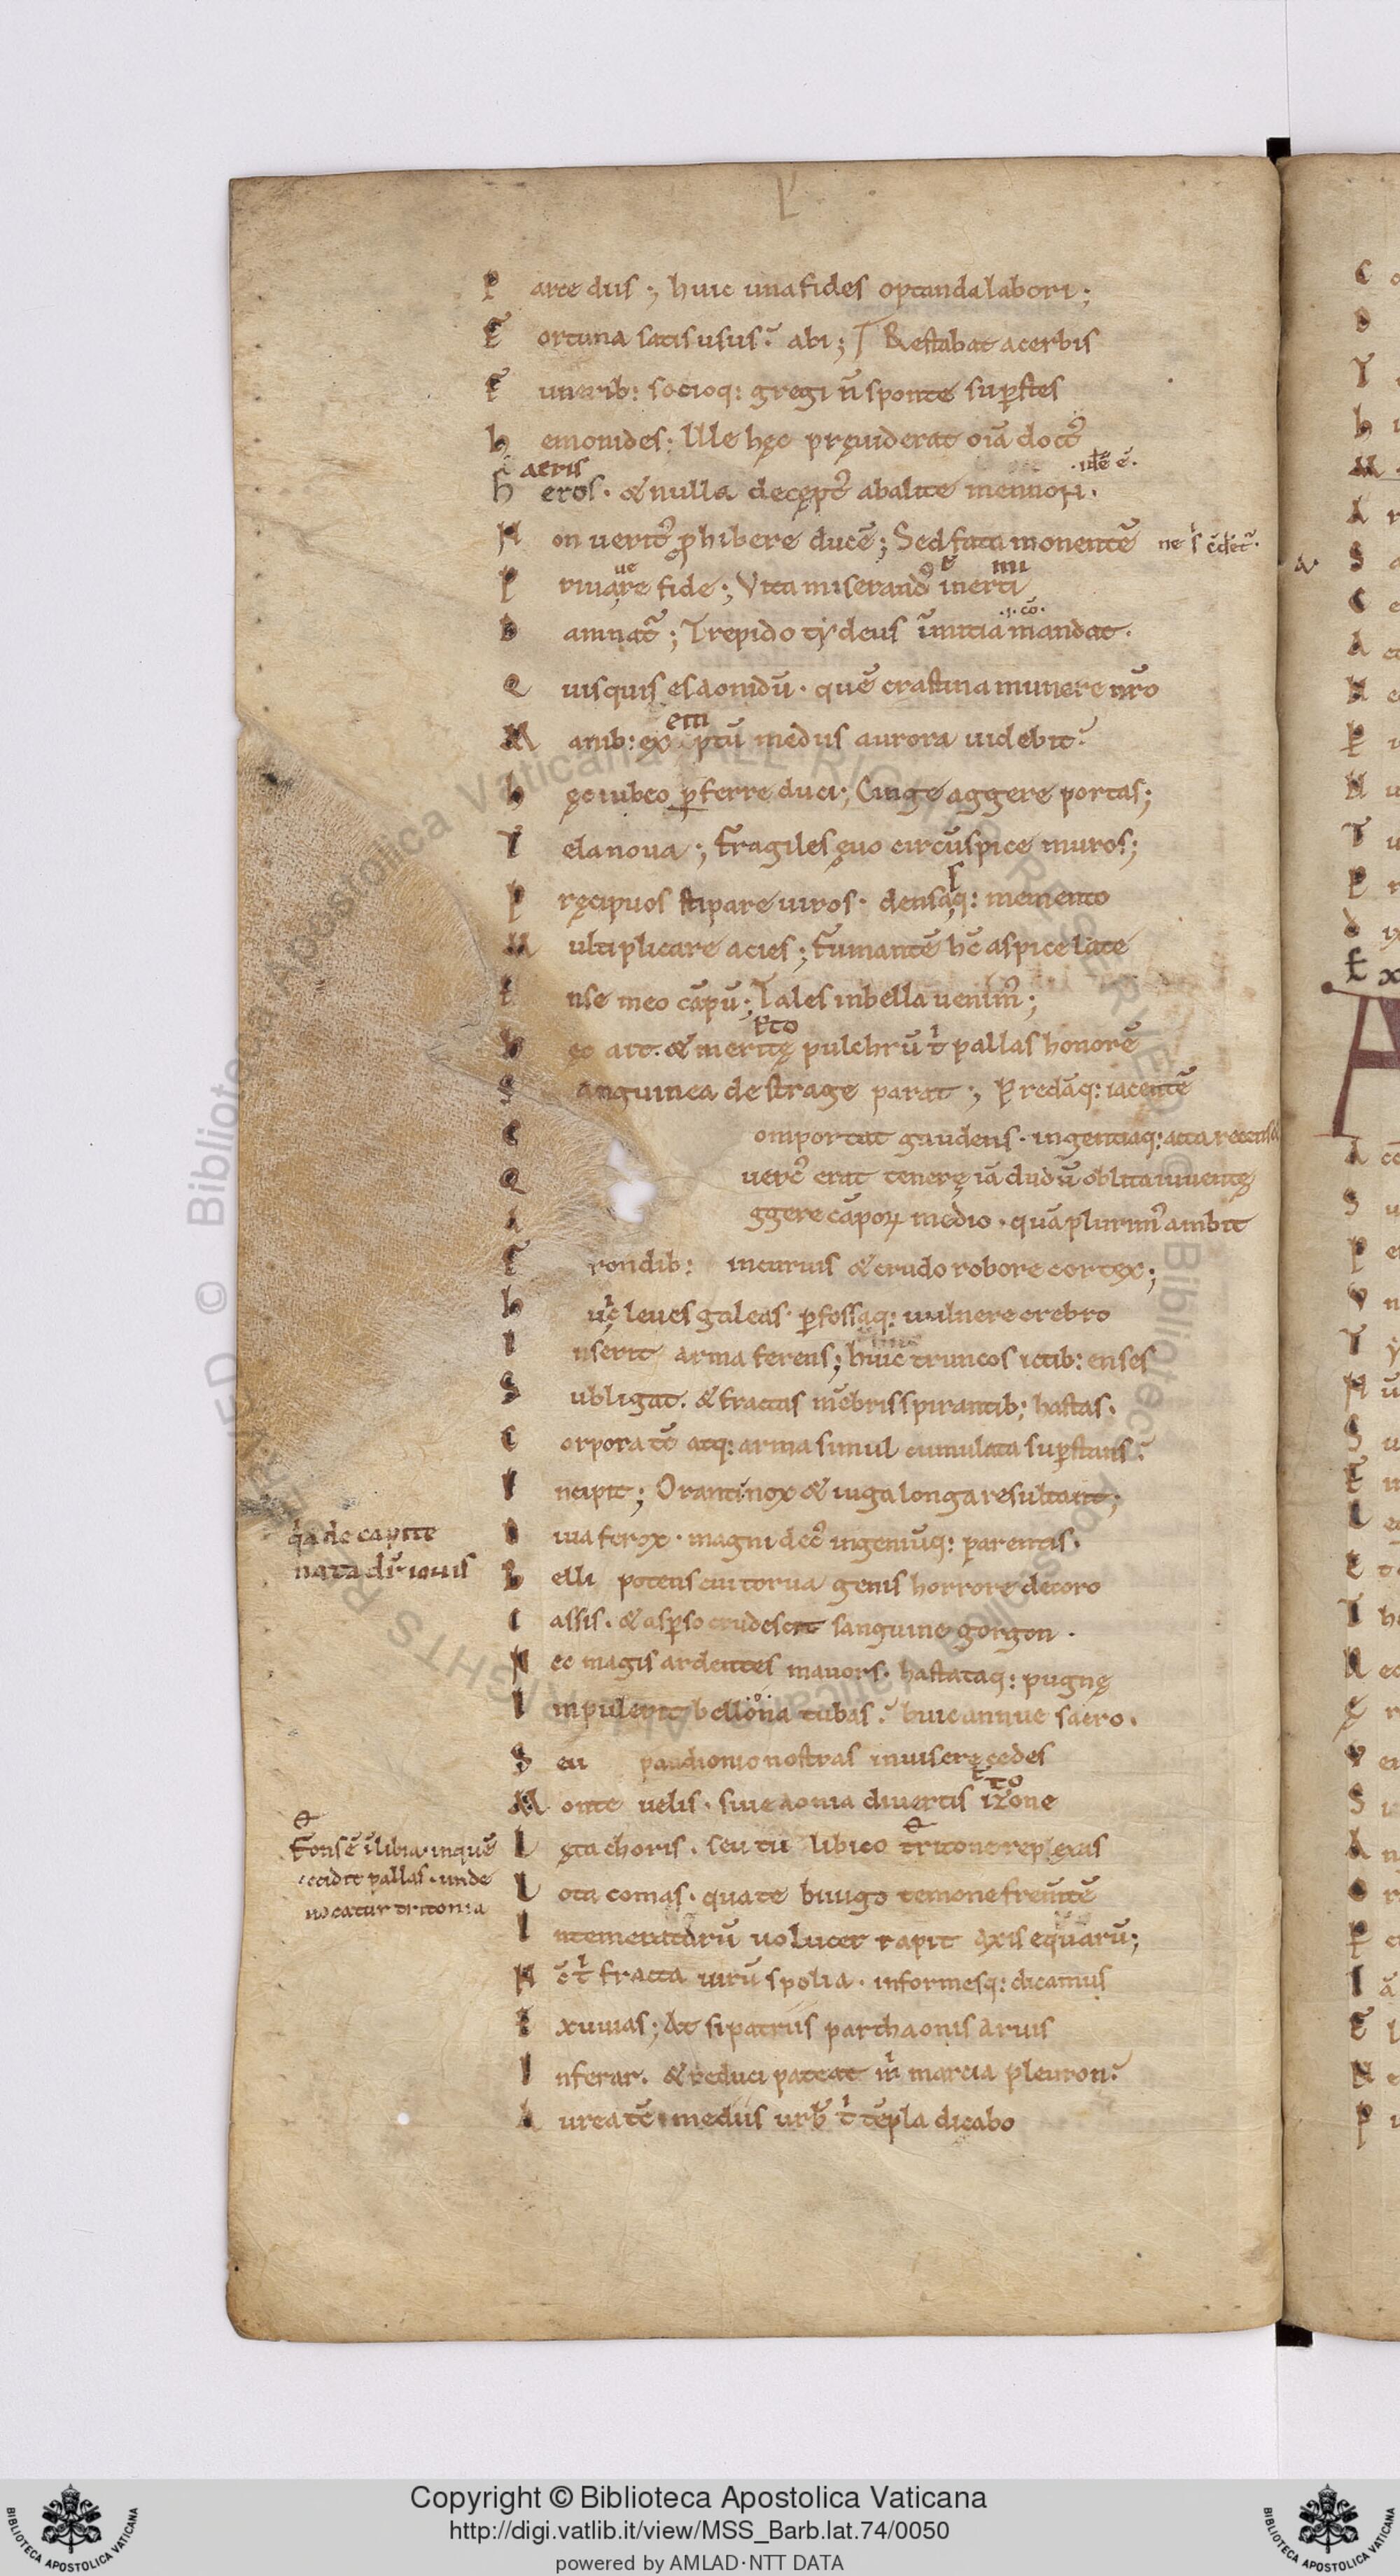 P arce diis ; huic una fides optanda labori ;
F ortuna satis usus᷑ abi ; Restabat acerbis
F unerib: socioq: gregi n̄ sponte sup̄stes
h emonides ; Ille hęc pręuiderat oīa doct᷒
aeris
.ul̄e ē.
H eros . & nulla decępt᷒ abalite mennoři .
N on uerit᷒ ꝓhibere ducē ; Sed fata monentē
ue
P riuare fide ; Vita miserand᷒ inerti
D amnat᷑ ; Trepido tẏdeus īmitia mandat .
Q uisquis es aonidū . quē crastina munere nr̄o
em
M anib: ex ptū medus aurora uidebit᷑
h ęc iubeo ꝑferre duci ; Cinge aggere portas ;
T ela noua ; Fragiles ęuo circūspice muros ;
P ręcipuos stipare uiros . densaq: memento
M ultiplicare acies ; Fumantē hc̄ aspice late
E nse meo cāpū ; Tales in bella uenim᷒ ;
h ęc ait . & meritę pulchrū tⁱ pallas honorē
S anguinea de strage parat ; Predāq: iacentē
C omportat gaudens . ingentiaq: acta recenset
Q uerc᷒ erat tenerę iā dudū oblita iuuentę
A ggere cāpoꝝ medio . quā plurim᷒ ambit
F rondib: incuruis & crudo robore cortex ;
h uⁱc leues galeas . ꝑfossaq: uulnere crebro
I nserit arma ferens ; huic truncos ictib: enses
S ubligat . & fractas mēbris spirantib: hastas .
C orpora tē atq: arma simul cumulata sup̄stans᷑
I ncipit ; Oranti nox & iuga longa resultant ;
qⁱa de capite
nata dr̄ iouis
D iua ferox . magni dec᷒ ingeniūq: parentis .
B elli potens cui torua genis horrore decoro
C assis . & asꝑso crudescit sanguine gorgon .
N ec magis ardentes mauors . hastataq: pugnę
I mpulerit bellona tubas᷑ huic annue sacro .
S eu pandionio nostras inuisere cędes
M onte uelis . siue aonia diuertis itone
L ęta choris . seu tu libico tritone repexas
Fons ē ī libia . in quē
cecidit pallas . unde
uocatur tritonia
L ota comas . qua te biiugo temone fremītē
I ntemeratarū uolucer rapit axis equarū ;
N c̄ tⁱ fracta uirū spolia . informesq: dicamus
E xuuias ; At si patriis parthaonis aruis
I nferar . & reduci pateat mⁱ marcia pleuron᷑
A urea tē medus urb᷒ tⁱ tēpla dicabo
Copyright © Biblioteca Apostolica Vaticana
http://digi.vatlib.it/view/MSS_Barb.lat.74/0050
powered by AMLAD·NTT DATA